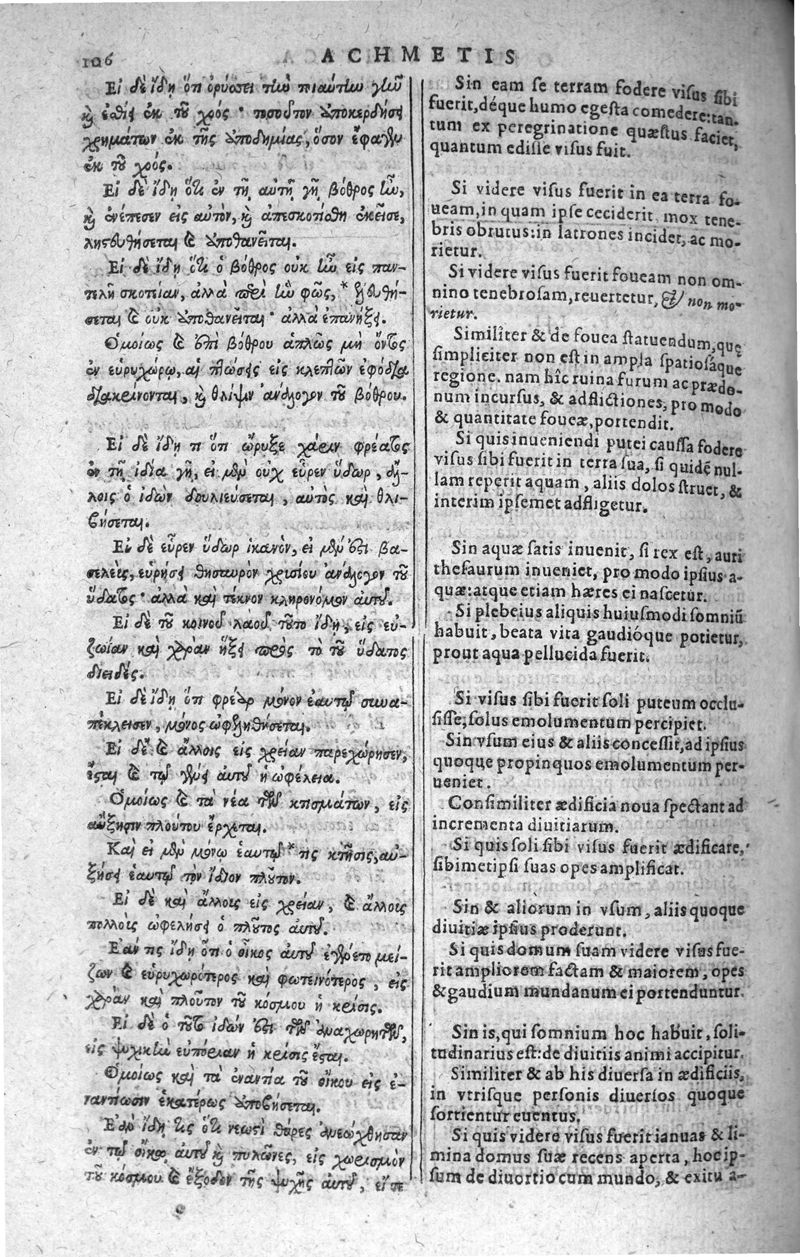 106
ACHMETIS
Εἰ δὲ ἴδῃ ὅτι ὀρύσσει τὴν τοιαύτην γῆν
καὶ ἐσθίει ἐκ τοῦ χοός· τοσοῦτον ἀποκερδήσει
χρημάτων ἐκ τῆς ἀποδημίας, ὅσον ἔφαγεν
ἐκ τοῦ χοός.
Εἰ δὲ ἴδῃ ὅτι ἐν τῇ αὐτῇ γῇ βόθρος ἦν,
καὶ ἐνέπεσεν εἰς αὐτὸν, καὶ ἀπεσκοτίσθη ἐκεῖσε,
λῃστευθήσεται καὶ ἀποθανεῖται.
Εἰ δὲ ἴδῃ ὅτι ὁ βόθρος οὐκ ἦν εἰς παν-
τελῆ σκοτίαν, ἀλλὰ
σεται καὶ οὐκ ἀποθανεῖται· ἀλλὰ ἐπανήξει.
Ὁμοίως καὶ ἐπὶ βόθρου ἁπλῶς μὴ ὄντος
ἐν εὐρυχώρῳ, αἱ πτώσεις εἰς κλεπτῶν ἔφοδον
διακρίνονται, καὶ θλῖψιν ἀνάλογον τοῦ βόθρου.
Εἰ δὲ ἴδῃ τις ὅτι ὤρυξε χάριν φρέατος
ἐν τῇ ἰδίᾳ γῇ, εἰ μὲν οὐχ εὗρεν ὕδωρ, ἄλ-
λοις ὁ ἰδὼν δολιεύσεται, αὐτὸς καὶ θλι-
βήσεται.
Εἰ δὲ εὗρεν ὕδωρ ἱκανὸν, εἰ μὲν ἔστι βα-
σιλεὺς, εὑρήσει θησαυρὸν χρυσίου ἀνάλογον τοῦ
ὕδατος· ἀλλὰ καὶ τέκνον κληρονόμον αὐτοῦ.
Εἰ δὲ τοῦ κοινοῦ λαοῦ τοῦτο ἴδῃ, εἰς εὐ-
ζωΐαν καὶ χαρὰν ἥξει πρὸς τὸ τοῦ ὕδατος
διειδές.
Εἰ δὲ ἴδῃ ὅτι φρέαρ μόνον ἑαυτῷ συνα-
πέκλεισεν, μόνος ὠφεληθήσεται.
Εἰ δὲ καὶ ἄλλοις εἰς χρείαν παρεχώρησεν,
ἔσται καὶ τῷ γένει αὐτοῦ ἡ ὠφέλεια.
Ὁμοίως καὶ τὰ νέα τῶν κτισμάτων, εἰς
αὔξησιν πλούτου ἔρχεται.
Καὶ εἰ μὲν μόνῳ ἑαυτῷ * τῆς κτήσεις, αὐ-
ξήσει ἑαυτῷ τὸν ἴδιον πλοῦτον.
Εἰ δὲ καὶ ἄλλοις εἰς χρείαν, καὶ ἄλλοις
πολλοῖς ὠφελήσει ὁ πλοῦτος αὐτοῦ.
Ἐάν τις ἴδῃ ὅτι ὁ οἶκος αὐτοῦ ἐγένετο μεί-
ζων καὶ εὐρυχωρότερος καὶ φωτεινότερος, εἰς
χαρὰν καὶ πλοῦτον τοῦ κόσμου ἡ κρίσις.
Εἰ δὲ ὁ τοῦτο ἰδὼν ἔστι τῶν ἀναχωρητῶν,
εἰς ψυχικὴν εὐπορίαν ἡ κρίσις ἔσται.
Ὁμοίως καὶ τὰ ἐναντία τοῦ οἴκου εἰς ἐ-
ναντίωσιν ἑκατέρως ἀποβήσεται.
Ἐὰν ἴδῃ τις ὅτι νεωστὶ θύρες ἀνεῴχθησαν
ἐν τῷ οἴκῳ αὐτοῦ καὶ πυλῶνες, εἰς χωρισμὸν
τοῦ κόσμου καὶ ἔξοδον τῆς ψυχῆς αὐτοῦ,
Sin eam se terram fodere visus sibi
fuerit, déque humo egesta comedere: tan-
tum ex peregrinatione quæstus faciet,
quantum edisse visus fuit.
Si videre visus fuerit in ea terra fo-
ueam, in quam ipse ceciderit mox tene-
bris obrutus: in latrones incidet, ac mo-
rietur.
Si videre visus fuerit foueam non om-
nino tenebrosam, reuertetur, & non mo-
rietur.
Similiter & de fouea statuendum, que
simpliciter non est in ampla spatiosáque
regione. nam hîc ruina furum ac prædo-
num incursus, & adflictiones, pro modo
& quantitate foueæ, portendit.
Si quis inueniendi putei caussa fodere
visus sibi fuerit in terra sua, si quidē nul-
lam reperit aquam, aliis dolos struet, &
interim ipsemet adfligetur.
Sin aquæ satis inuenit, si rex est, auri
thesaurum inueniet, pro modo ipsius a-
quæ: atque etiam hæres ei nascetur.
Si plebeius aliquis huiusmodi somniū
habuit, beata vita gaudióque potietur,
prout aqua pellucida fuerit.
Si visus sibi fuerit soli puteum occlu-
sisse, solus emolumentum percipiet.
Sin vsum eius & aliis concessit, ad ipsius
quoque propinquos emolumentum per-
ueniet.
Consimiliter ædificia noua spectant ad
incrementa diuitiarum.
Si quis soli sibi visus fuerit ædificare,
sibimetipsi suas opes amplificat.
Sin & aliorum in vsum, aliis quoque
diuitiæ ipsius proderunt.
Si quis domum suam videre visus fue-
rit ampliorem factam & maiorem, opes
& gaudium mundanum ei portenduntur.
Sin is, qui somnium hoc habuit, soli-
tudinarius est: de diuitiis animi accipitur.
Similiter & ab his diuersa in ædificiis,
in vtrisque personis diuersos quoque
sortientur euentus.
Si quis videre visus fuerit ianuas & li-
mina domus suæ recens aperta, hoc ip-
sum de diuortio cum mundo, & exitu a-